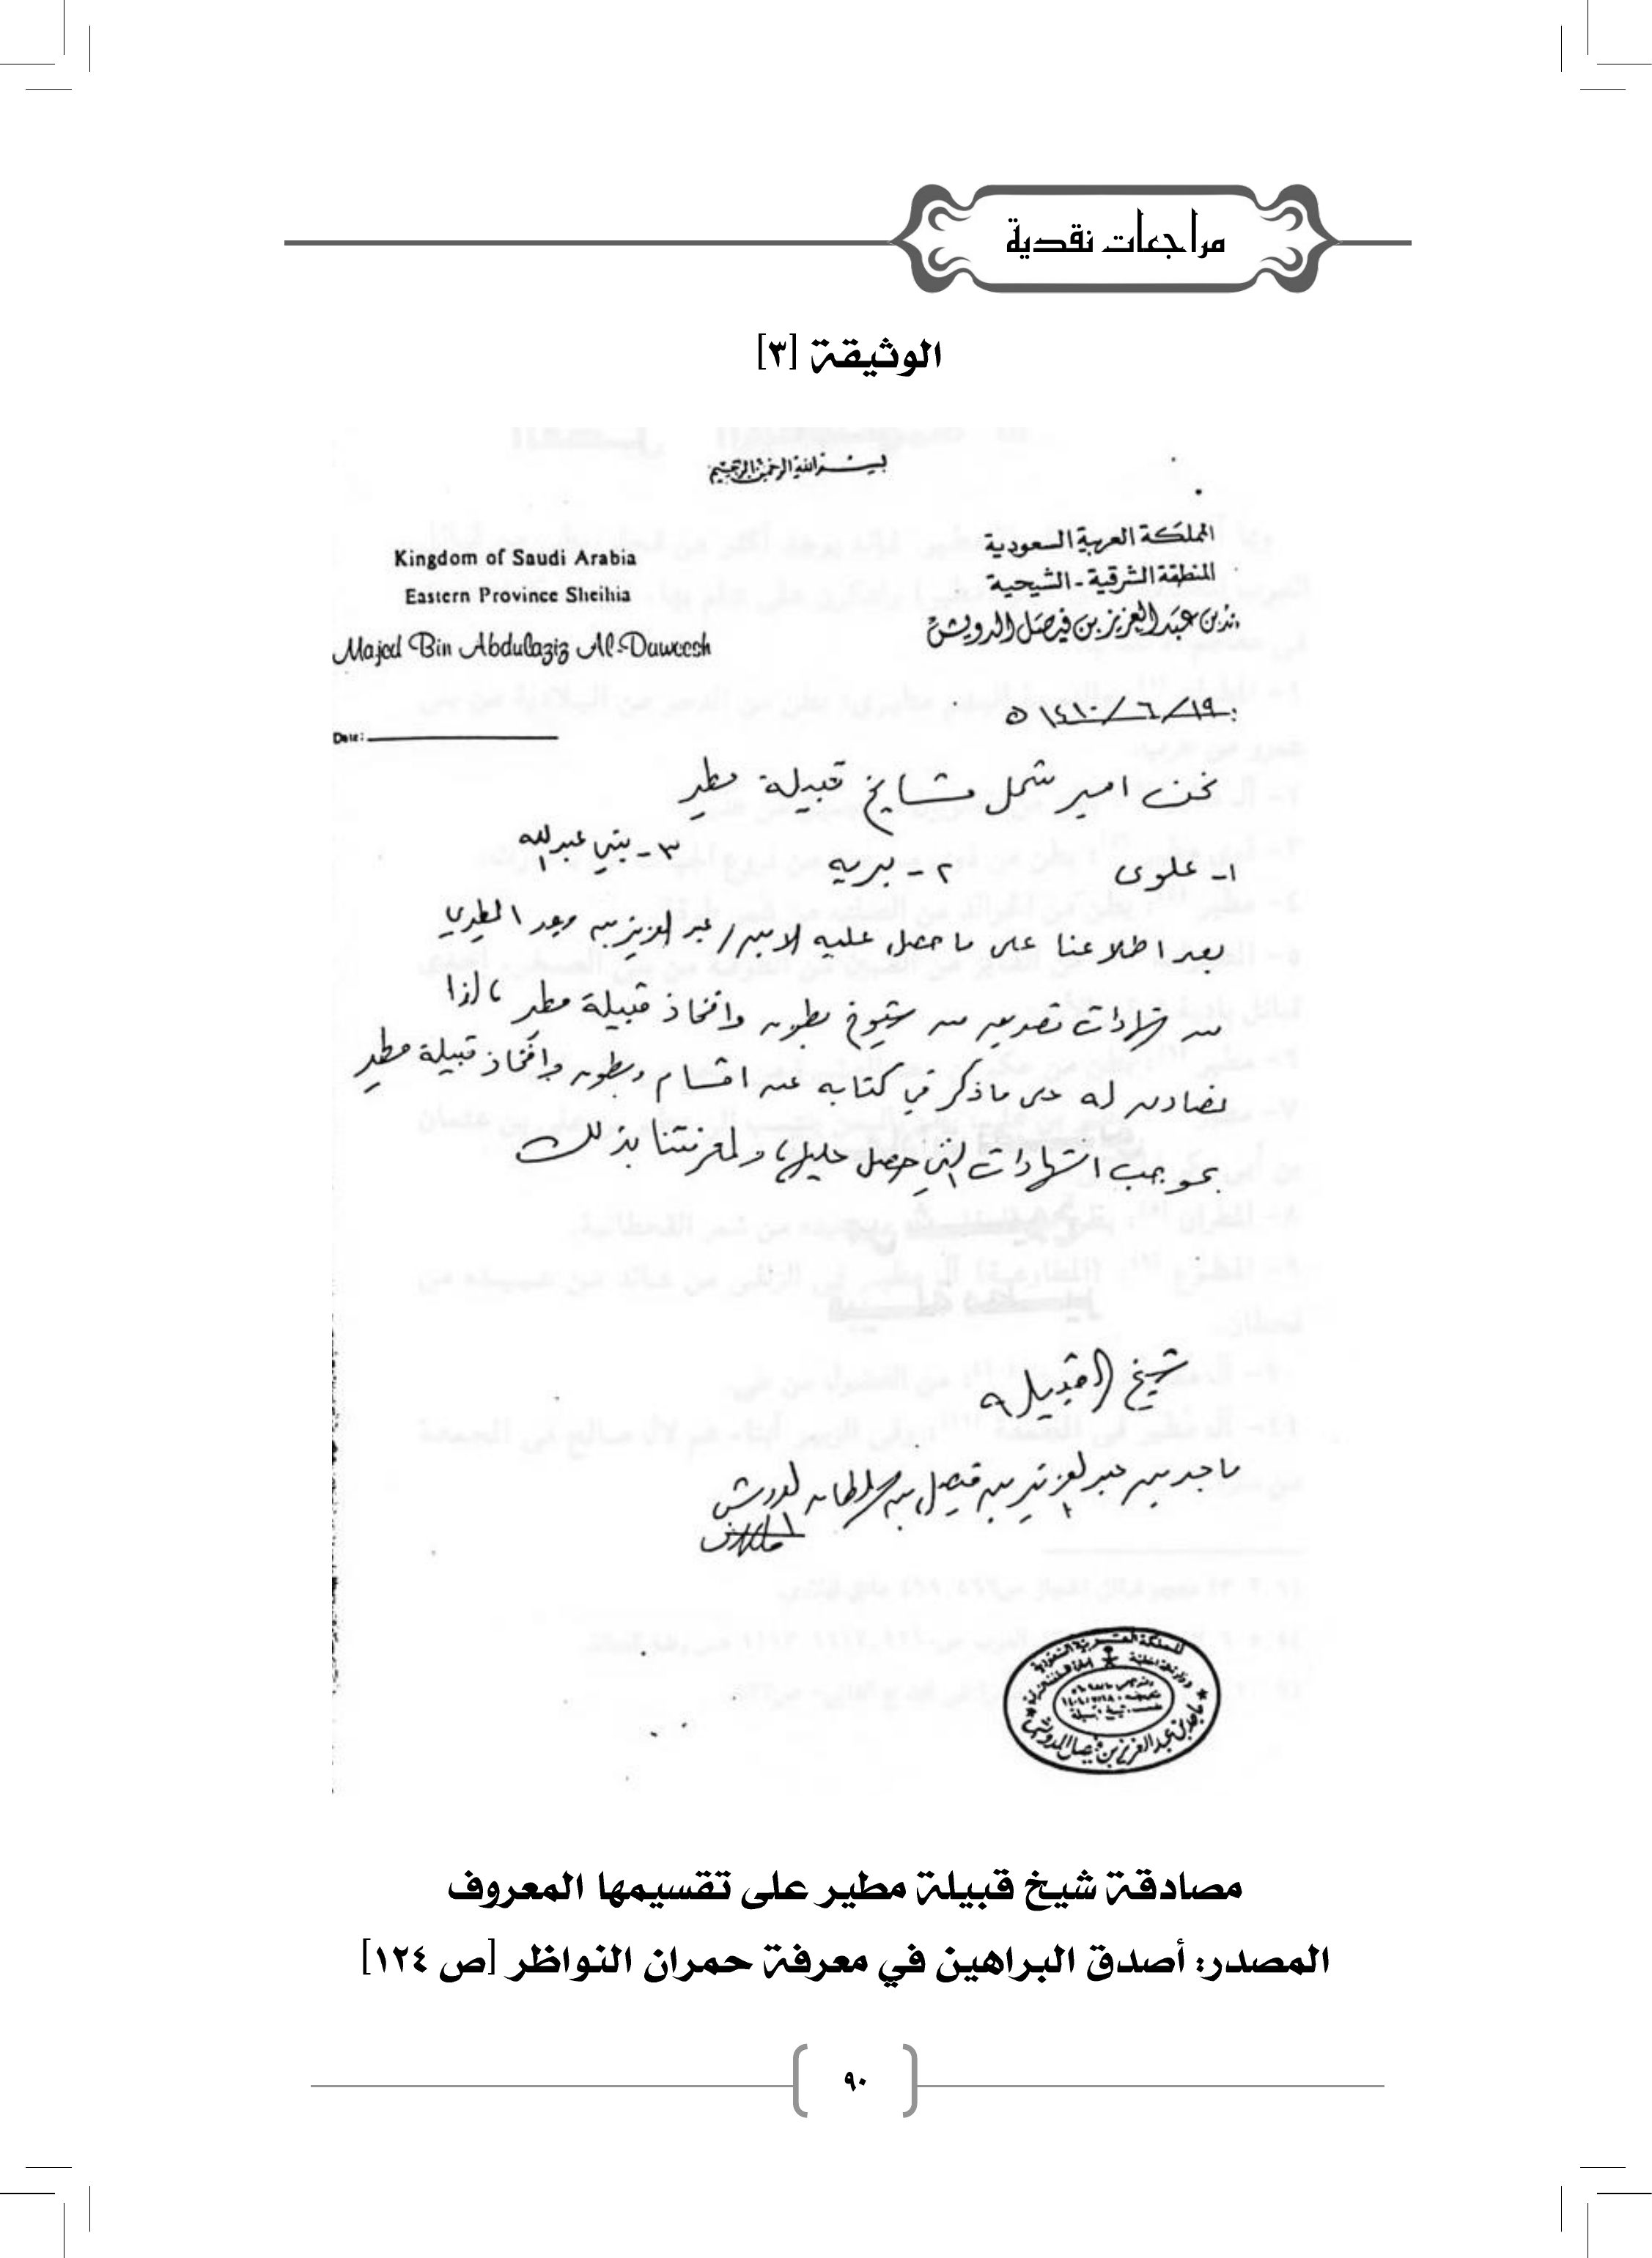 مراجعات نقدية
الوثيقة [٣]
بسم الله الرحمن الرحيم
المملكة العربية السعودية
المنطقة الشرقية - الشيحية
بن عبد العزيز بن فيصل الدويش
Kingdom of Saudi Arabia
Eastern Province Sheihia
Majed Bin Abdulaziz Al-Daweesh
١٩/٦/١٤١٠ ه
Date:
نحن امير شمل مشايخ قبيلة مطير
١- علوى ٢- بريه ٣- بني عبدالله
بعد اطلاعنا على ما حصل عليه الامير/ عبد العزيز بن المطيري
من شهادات تصديق من شيوخ بطون وافخاذ قبيلة مطير، لذا
نصادق له على ما ذكر في كتابه عن اقسام وبطون وافخاذ قبيلة مطير
بموجب الشهادات التي حصل عليها ولمعرفتنا بذلك
شيخ القبيلة
ماجد بن عبدالعزيز بن فيصل بن سلطان الدويش
المملكة العربية السعودية
ماجد بن عبد العزيز بن فيصل الدويش
مصادقة شيخ قبيلة مطير على تقسيمها المعروف
المصدر: أصدق البراهين في معرفة حمران النواظر [ص ١٢٤]
٩٠